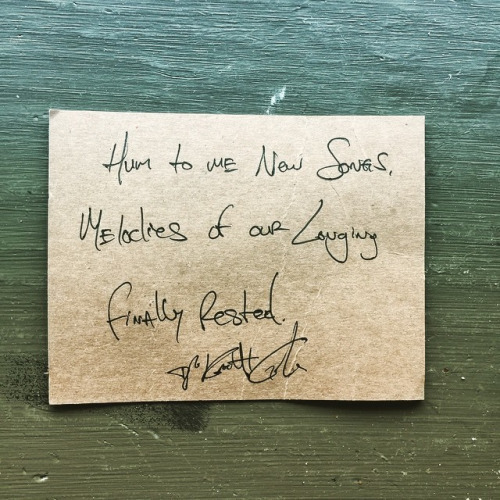 Hum to me New Songs.
Melodies of our Longing
finally Rested.